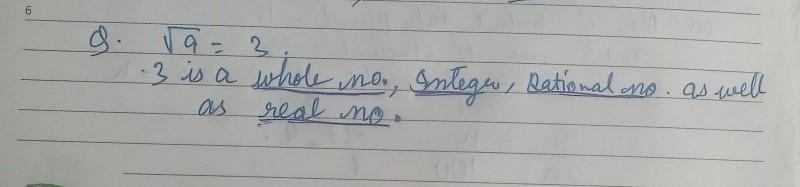 6
Q. √9 = 3.
·3 is a whole no., Integer, Rational no. as well
as real no.